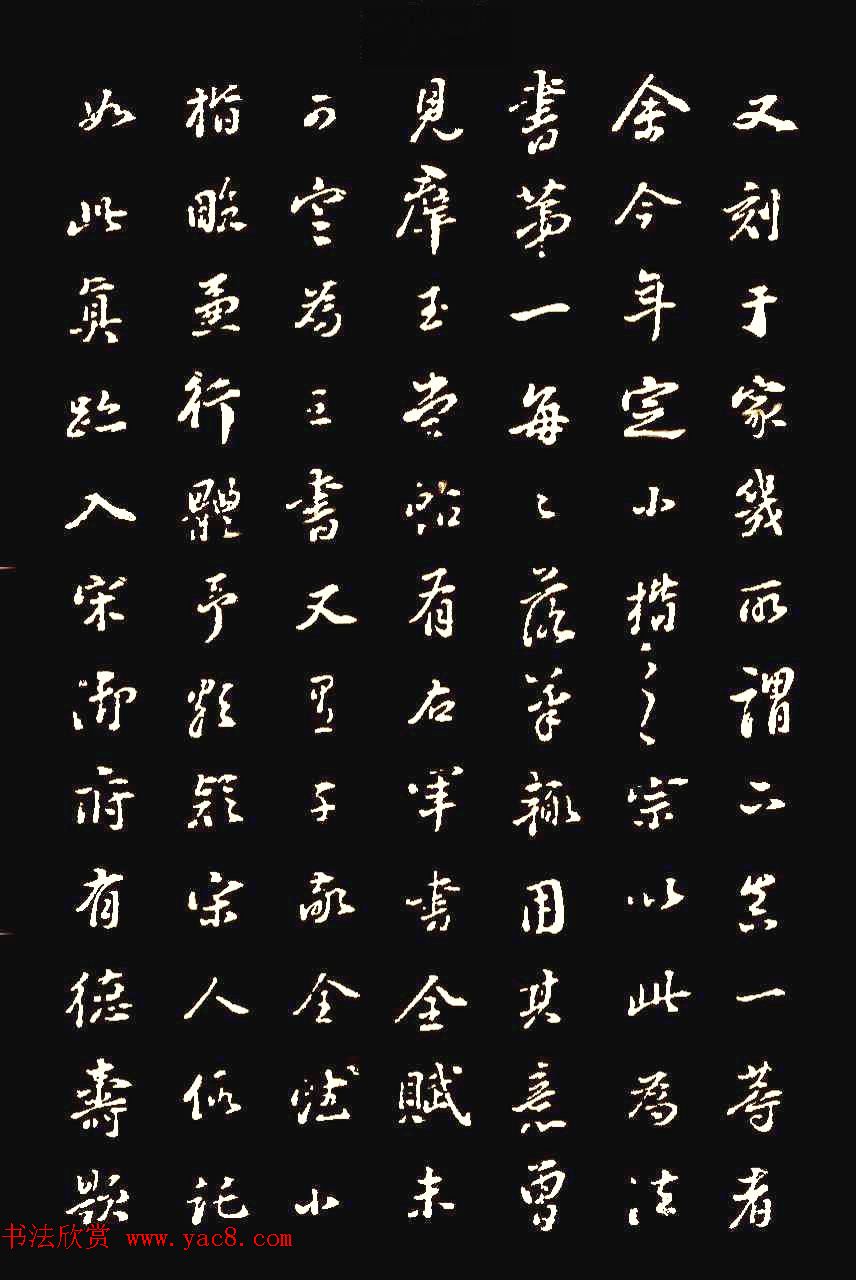 又刻于家幾所謂下真一等者
余今年定小楷之宗以此為法
書第一每々落筆輒用其意曾
見羣玉堂帖有右軍書全賦未
可定為王書又見子敬全賦小
楷臨兼行體予頗疑宋人伪託
如此真跡入宋御府有德壽題
书法欣赏 www.yac8.com